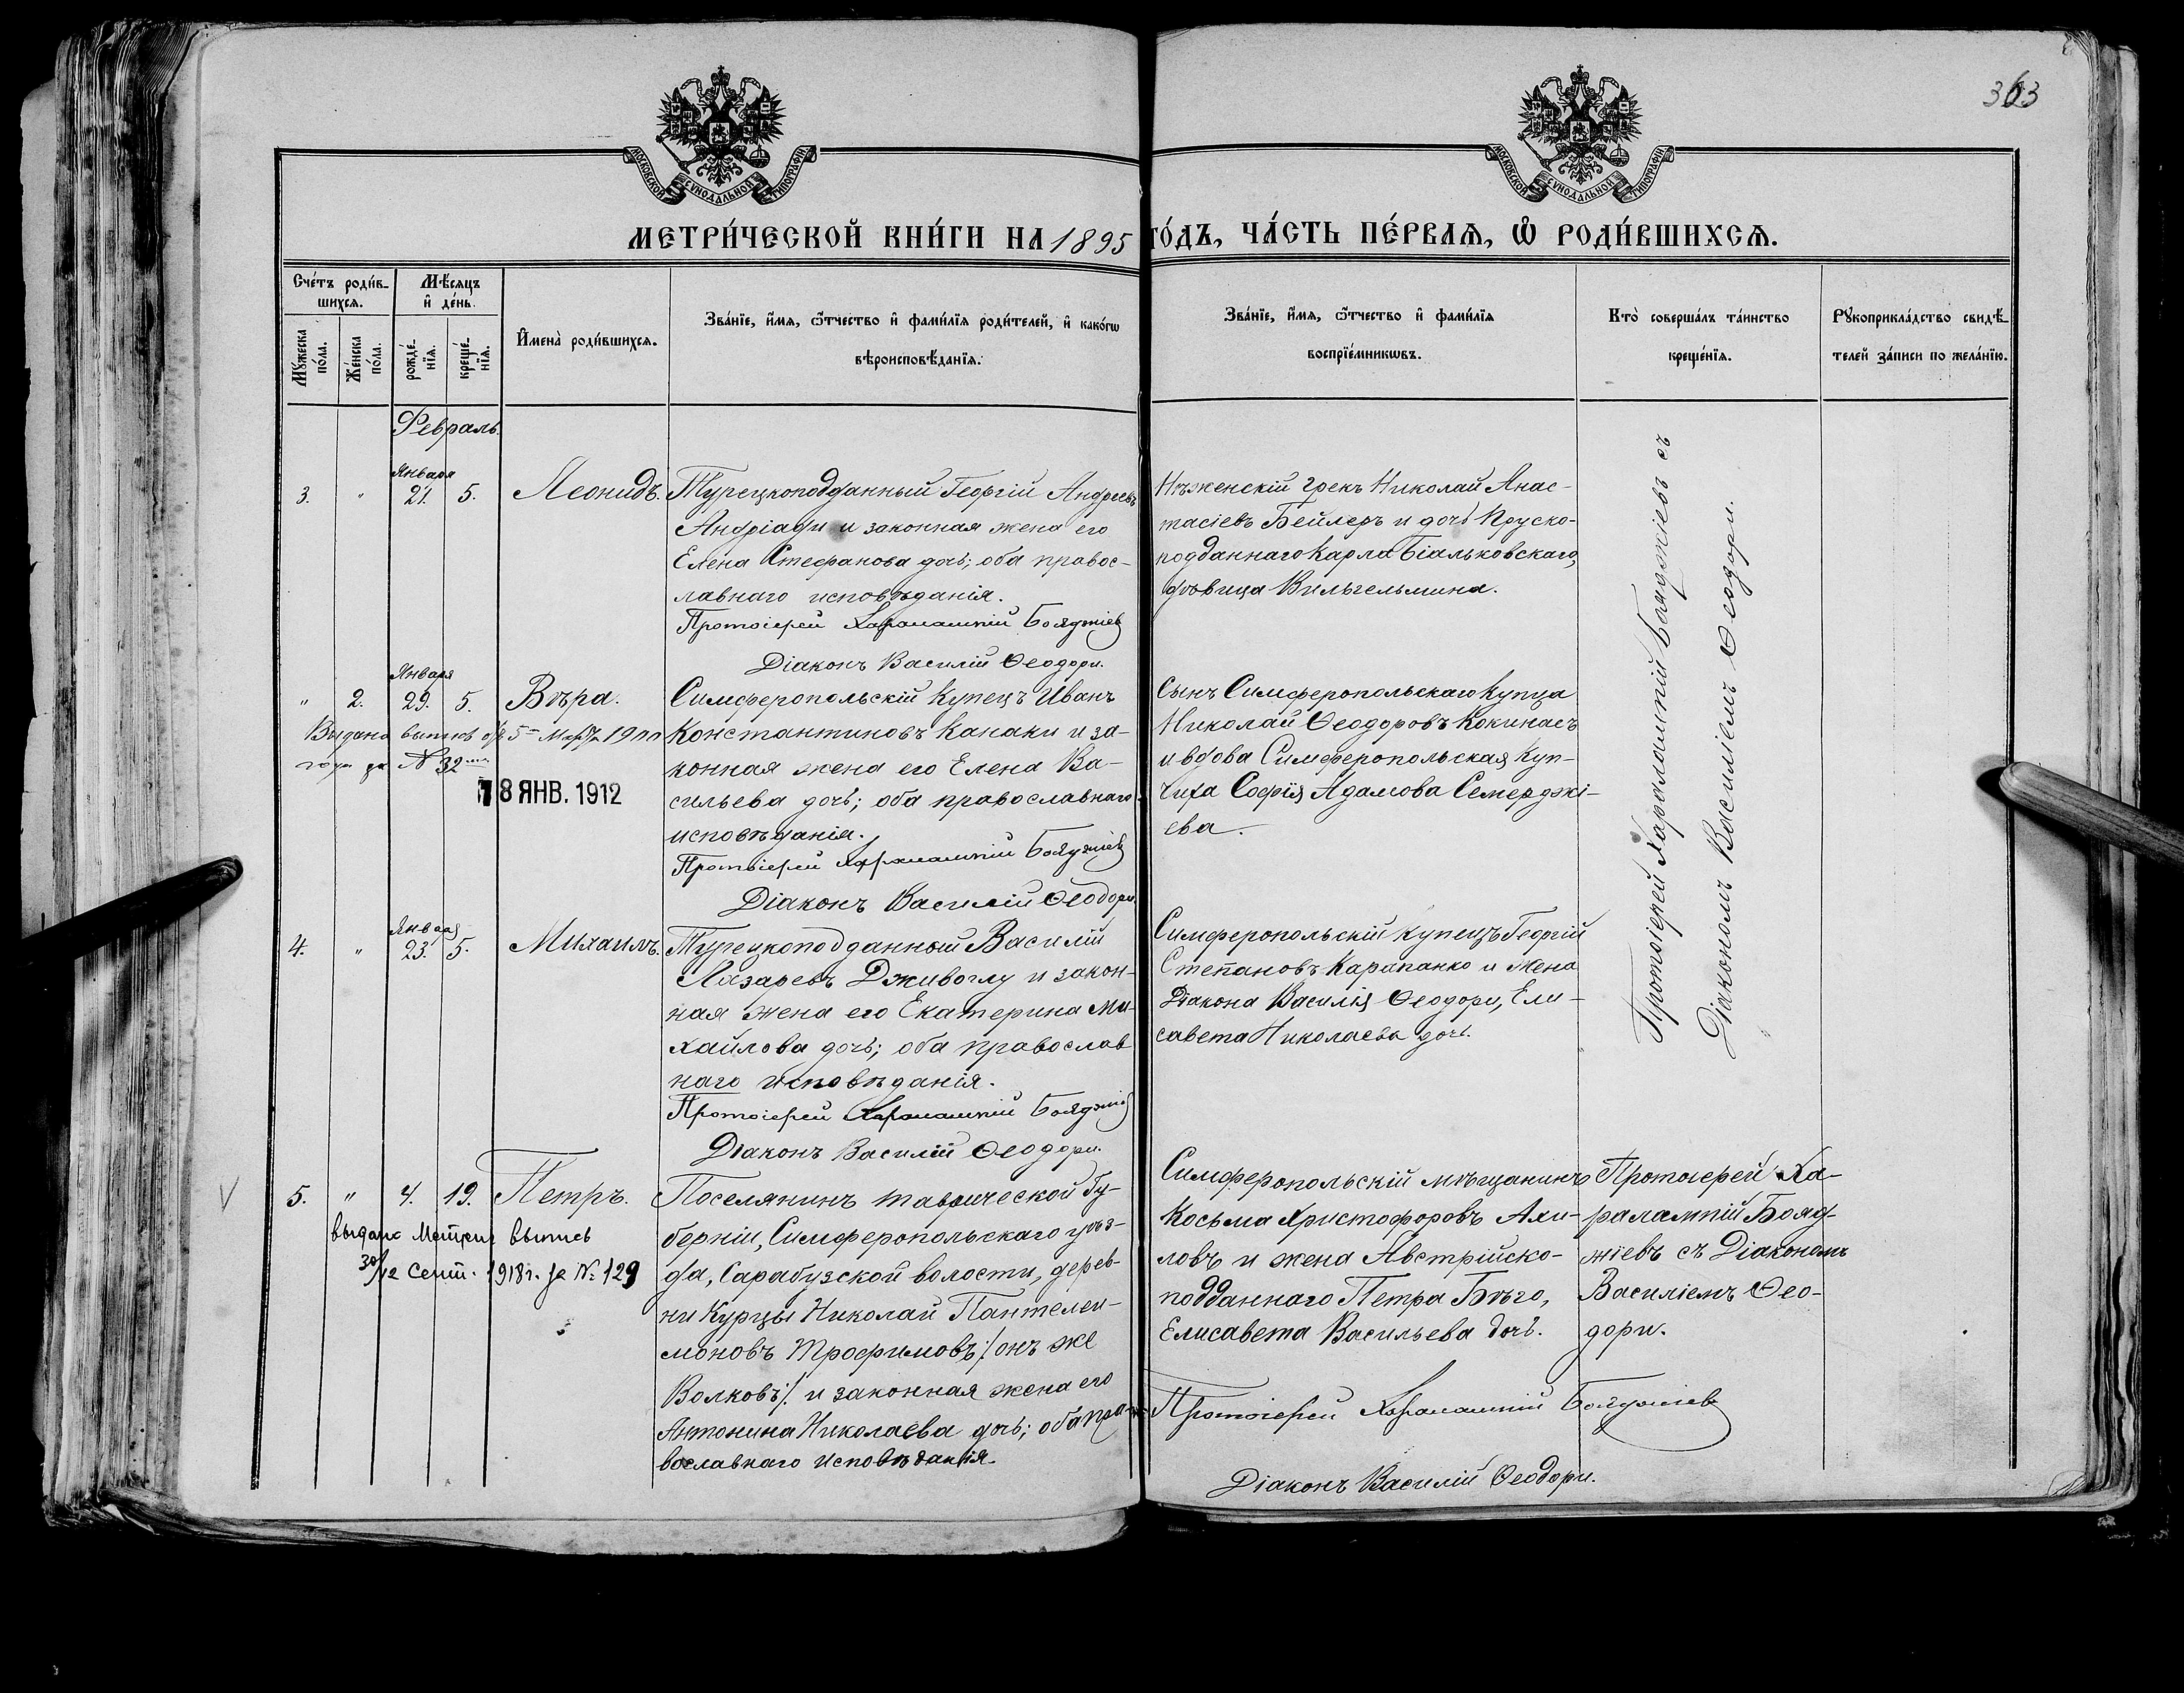 363
МОСКОВСКОЙ СѴНОДАЛЬНОЙ ТИПОГРАФІИ
МОСКОВСКОЙ СѴНОДАЛЬНОЙ ТИПОГРАФІИ
МЕТРИ́ЧЕСКОЙ КНИ́ГИ НА 1895 ГО́ДЪ, ЧА́СТЬ ПЕ́РВАѦ, Ѡ РОДИ́ВШИХСѦ.
Сче́тъ роди́в-
шихсѧ.
Мꙋ́жеска
по́ла.
Же́нска
по́ла.
Мѣ́сѧцъ
и҆ де́нь.
рожде́-
нїѧ.
креще́-
нїѧ.
И҆мена̀ роди́вшихсѧ.
Зва́нїе, и҆́мѧ, ѻ҆́тчество и҆ фами́лїѧ роди́телей, и҆ како́гѡ
вѣроисповѣ́данїѧ.
Зва́нїе, и҆́мѧ, ѻ҆́тчество и҆ фами́лїѧ
воспрїе́мникѡвъ.
Кто̀ соверша́лъ та́инство
креще́нїѧ.
Рꙋкоприкла́дство свидѣ́-
телей за́писи по жела́нїю.
Февраль.
Января
3. " 21. 5. Леонидъ.
Турецкоподданный Георгій Андреевъ
Андріади и законная жена его
Елена Стефанова дочь; оба правос-
лавнаго исповѣданія.
Протоіерей Харалампій Бояджіев
Діаконъ Василій Ѳеодори.
Нѣженскій грекъ Николай Анас-
тасіевъ Бейлеръ и дочь Пруско-
подданнаго Карла Біальковскаго,
дѣвица Вильгельмина.
Протоіерей Харалампій Бояджіевъ съ
Діакономъ Василіемъ Ѳеодори.
Января
" 2. 29. 5. Вѣра.
Выдана выпись
года за № 32
18 ЯНВ. 1912
Симферопольскій Купецъ Иванъ
Константиновъ Канаки и за-
конная жена его Елена Ва-
сильева дочь; оба православнаго
исповѣданія.
Протоіерей Харалампій Бояджіев
Діаконъ Василій Ѳеодори.
Сынъ Симферопольскаго Купца
Николай Ѳеодоровъ Кокинасъ
и вдова Симферопольская Куп-
чиха Софія Адамова Семерджі-
ева.
Января
4. " 23. 5. Михаилъ.
Турецкоподданный Василій
Лазаревъ Дживоглу и закон-
ная жена его Екатерина Ми-
хайлова дочь; оба православ
наго исповѣданія.
Протоіерей Харалампій Бояджіев
Діаконъ Василій Ѳеодори.
Симферопольскій купецъ Георгій
Степановъ Карапанко и жена
Діакона Василія Ѳеодори, Ели-
савета Николаева дочь.
5. " 4. 19. Петръ.
выдана Метрич выпись
30/12 Сент. 1918 г. за № 129
Поселянинъ Таврической Гу-
берніи, Симферопольскаго уѣз-
да, Сарабузской волости, дерев-
ни Курцы Николай Пантелеи-
моновъ Трофимовъ /: онъ же
Волковъ :/ и законная жена его
Антонина Николаева дочь; оба пра-
вославнаго исповѣданія.
Симферопольскій мѣщанинъ
Косьма Христофоровъ Ахи-
ловъ и жена Австрійско-
подданнаго Петра Бѣго,
Елисавета Васильева дочь.
Протоіерей Ха-
ралампій Бояд-
жіевъ съ Діакономъ
Василіемъ Ѳео-
дори.
Протоіерей Харалампій Бояджіев
Діаконъ Василій Ѳеодори.